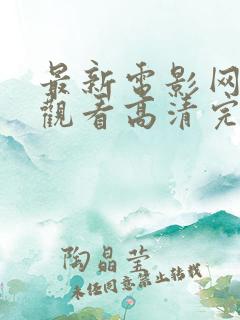 最新电影网
觀看高清完
陶晶莹
未经同意禁止转载